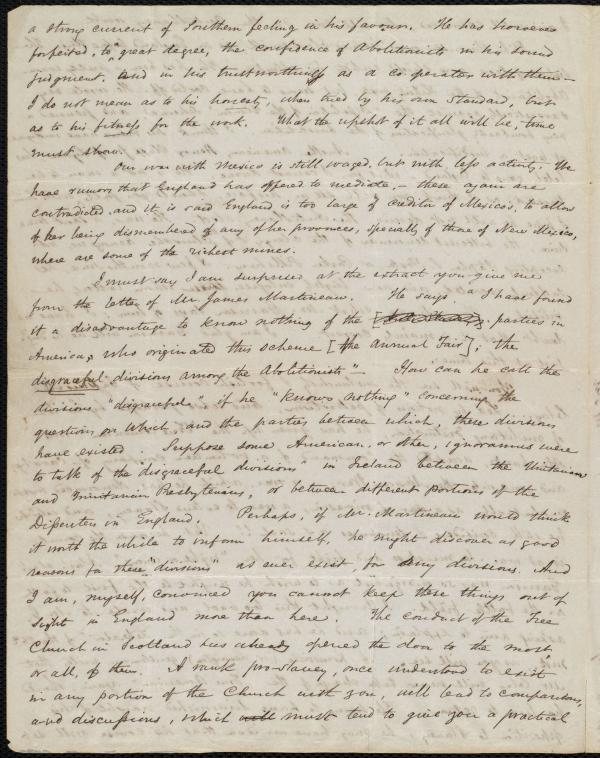 a strong current of Southern feeling in his favour. He has however
forfeited, to a great degree, the confidence of Abolitionists in his sound
judgment, and in his trustworthiness as a co-operator with them –
I do not mean as to his honesty, when tried by his own standard, but
as to his fitness for the work. What the upshot of it all will be, time
must show.
Our war with Mexico is still waged, but with less activity. We
have rumors that England has offered to mediate, – these again are
contradicted, and it is said England is too large a creditor of Mexico's, to allow
of her being dismembered of any of her provinces, specially of those of New Mexico,
where are some of the richest mines.
I must say I am surprised at the extract you give me
from the letter of Mr. James Martineau. He says "I have found
it a disadvantage to know nothing of the parties in
America, who originated this scheme [the Annual Fair]; the
disgraceful divisions among the Abolitionists" – How can he call the
divisions "disgraceful" if he "knows nothing" concerning the
questions on which, and the parties between which, these divisions
have existed. Suppose some American, or other, ignoramus were
to talk of the disgraceful divisions" in Ireland between the Unitarian
and Trinitarian Presbyterians, or between different portions of the
Dissenters in England. Perhaps, if Mr. Martineau would think
it worth the while to inform himself, he might discover as good
reasons for these "divisions" as ever exist, for any divisions. And
I am, myself, convinced you cannot keep these things out of
sight in England more than here. The conduct of the Free
Church in Scotland has already opened the door to the most,
or all, of them. A rank pro-slavery, once understood to exist
in any portion of the Church with you, will lead to comparisons,
and discussions, which will must tend to give you a practical